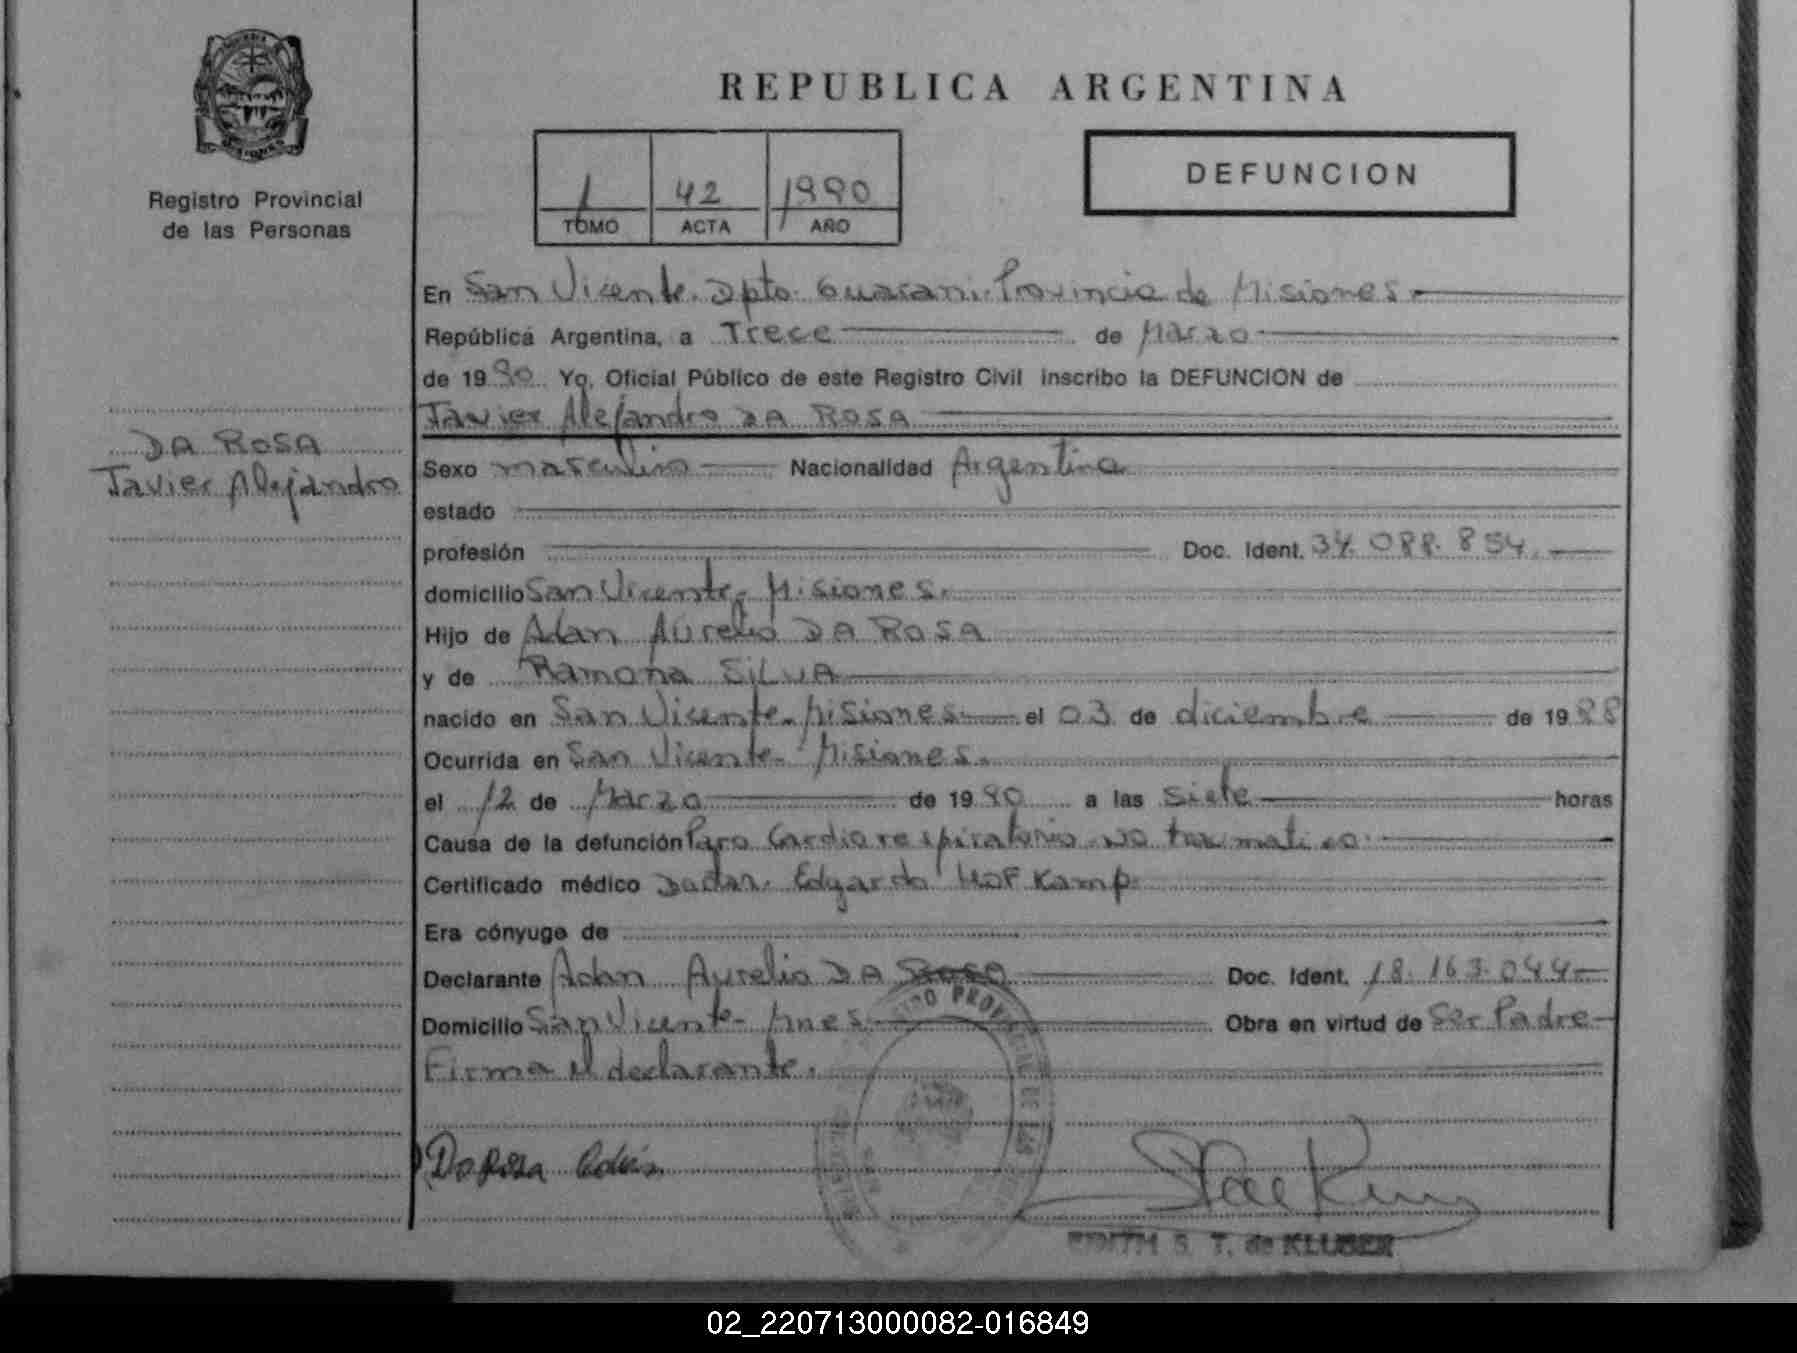 REPUBLICA ARGENTINA
Registro Provincial
de las Personas
1 42 1990
TOMO ACTA AÑO
DEFUNCION
DA ROSA
Javier Alejandro
En San Vicente. Dpto. Guarani. Provincia de Misiones.
República Argentina, a Trece de Marzo
de 1990 Yo, Oficial Público de este Registro Civil inscribo la DEFUNCION de
Javier Alejandro DA ROSA
Sexo masculino Nacionalidad Argentina
estado
profesión Doc. Ident. 34.088.854
domicilio San Vicente, Misiones.
Hijo de Adan Aurelio DA ROSA
y de Ramona SILVA
nacido en San Vicente. Misiones el 03 de diciembre de 1988
Ocurrida en San Vicente. Misiones.
el 12 de Marzo de 1990 a las siete horas
Causa de la defunción Paro Cardiorespiratorio no traumatico.
Certificado médico Edgardo Hof Kamp
Era cónyuge de
Declarante Adan Aurelio DA Rosa Doc. Ident. 18.163.044
Domicilio San Vicente - Mnes Obra en virtud de Ser Padre
Firma el declarante.
Da Rosa
EDITH S. T. de KLUBER
02_220713000082-016849